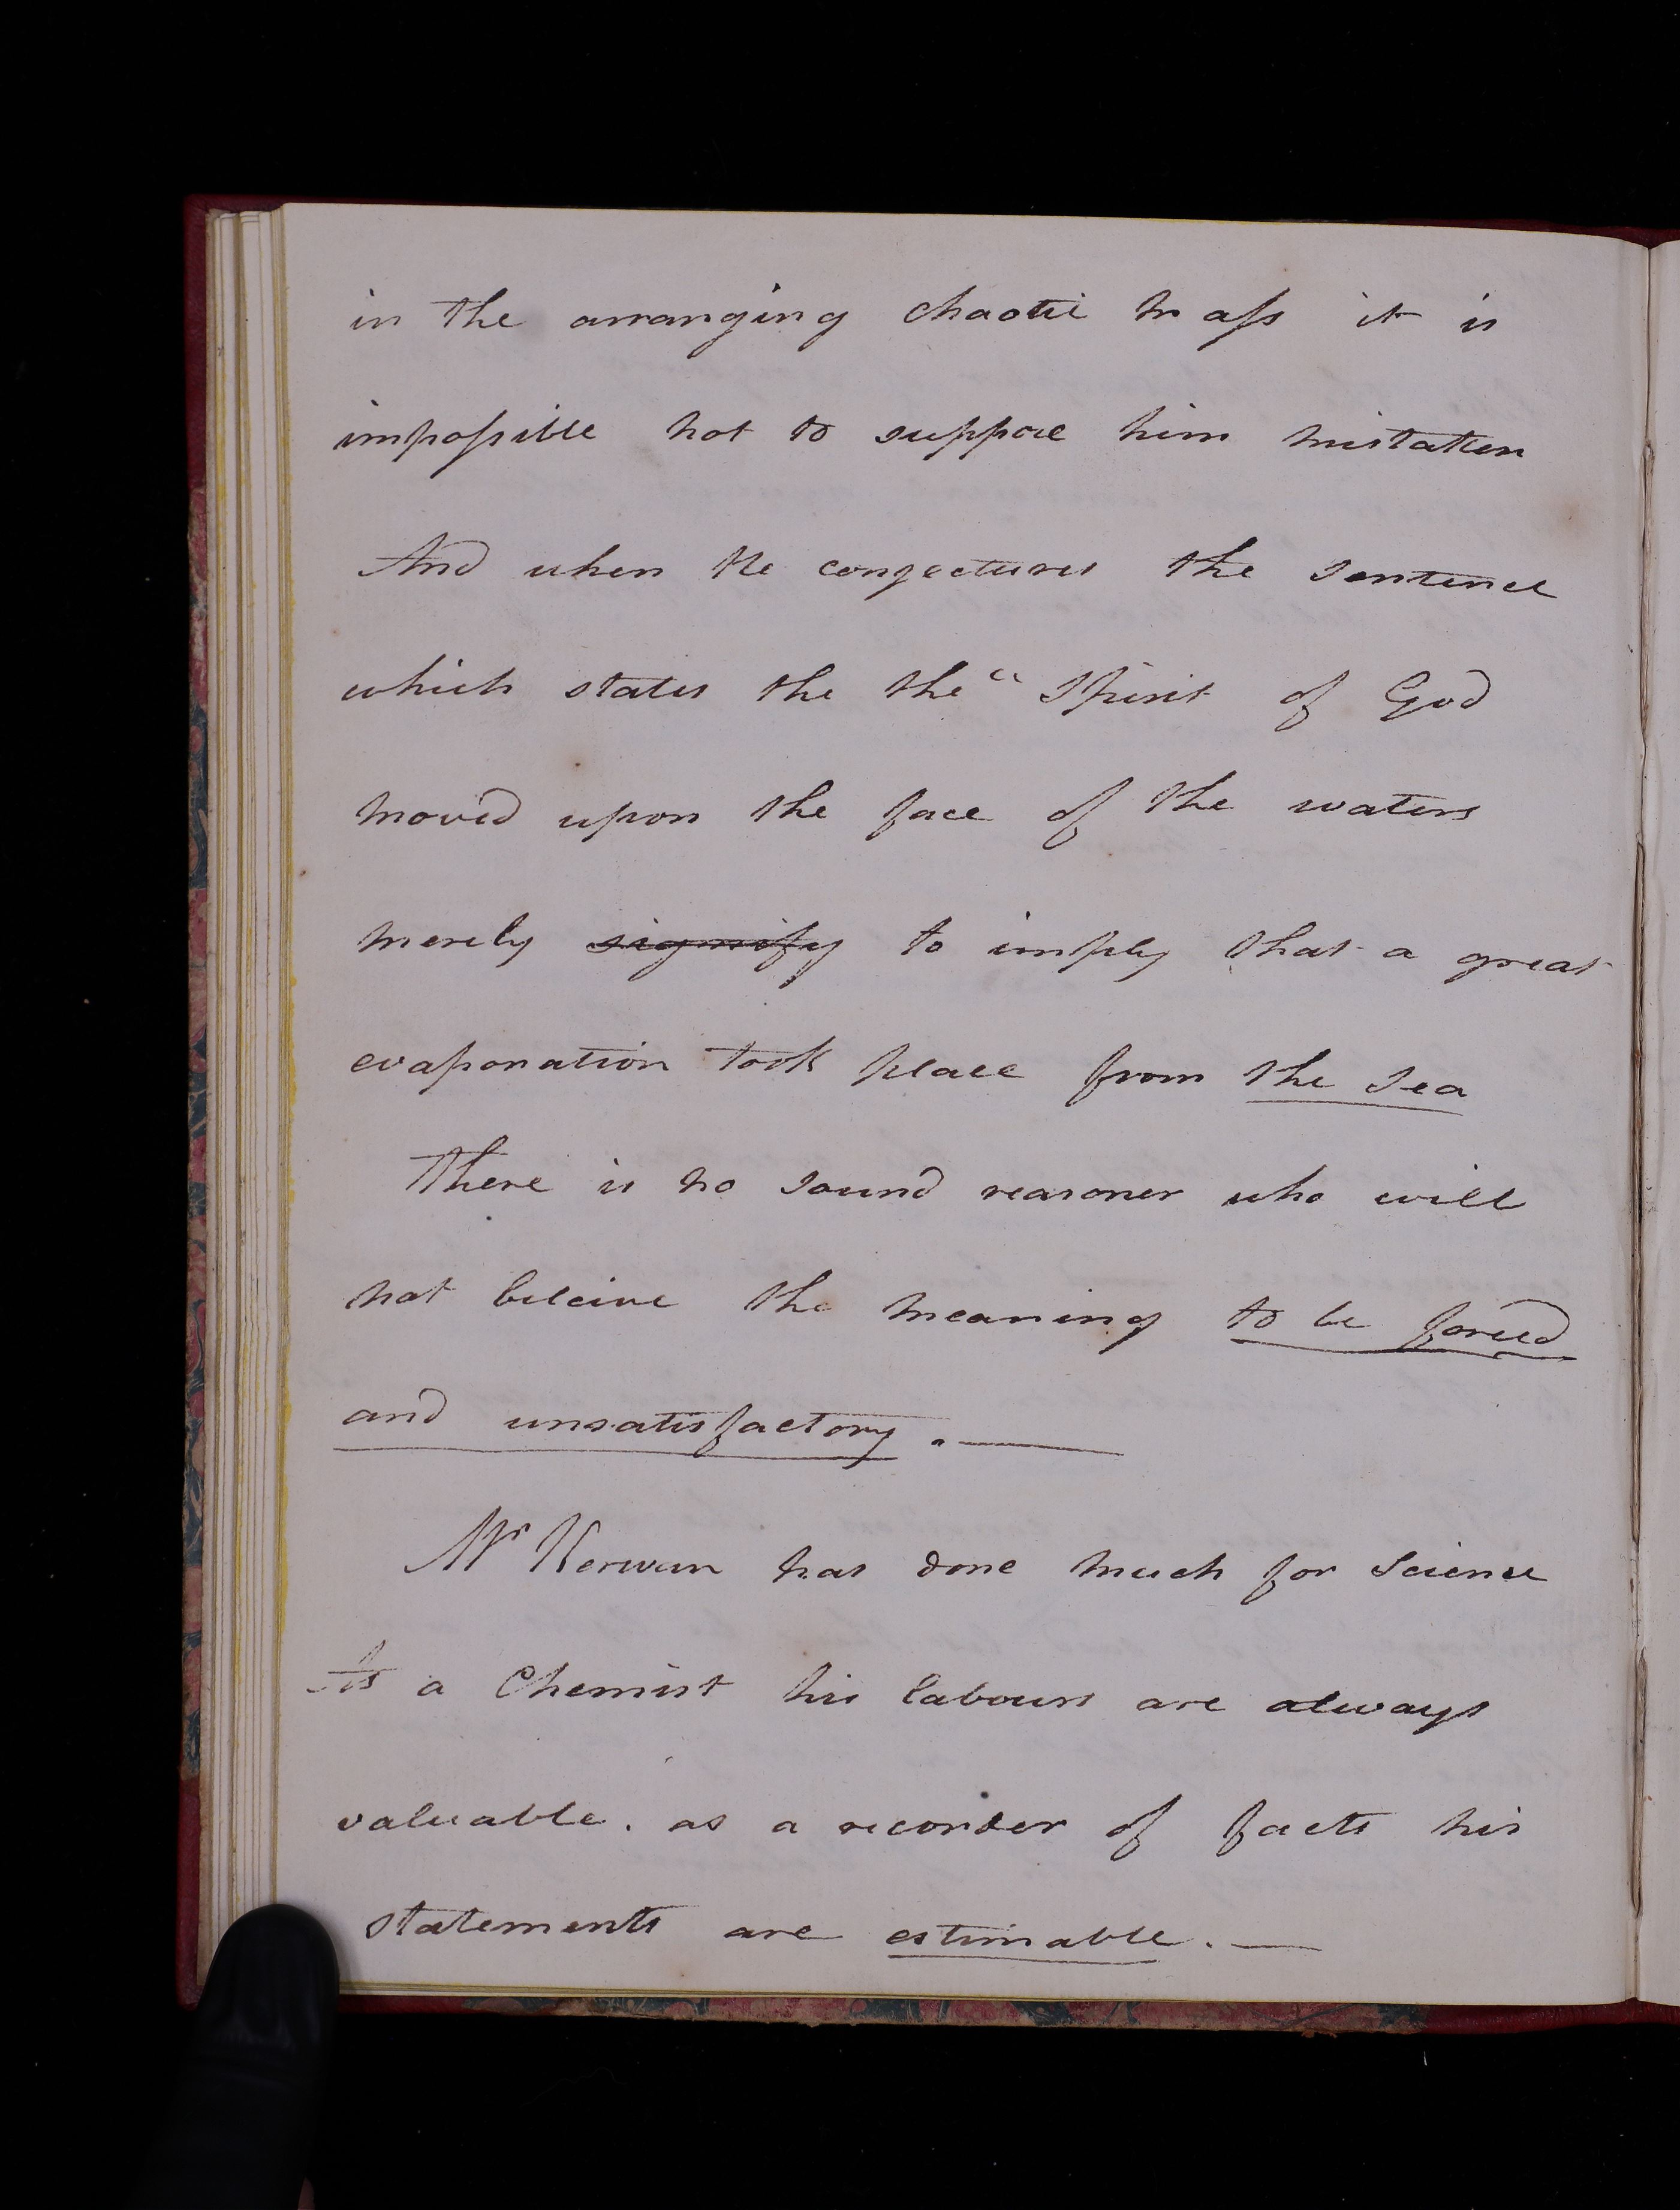 in the arranging chaotic mass it is
impossible not to suppose him mistaken
And when He conjectures the sentence
which states the the " Spirit of God
moved upon the face of the waters
merely signify to imply that a great
evaporation took place from the sea
There is no sound reasoner who will
not beleive the meaning to be forced
and unsatisfactory. —
Mr Kerwan has done much for Science
As a Chemist his labours are always
valuable. as a recorder of facts his
statements are estimable. —